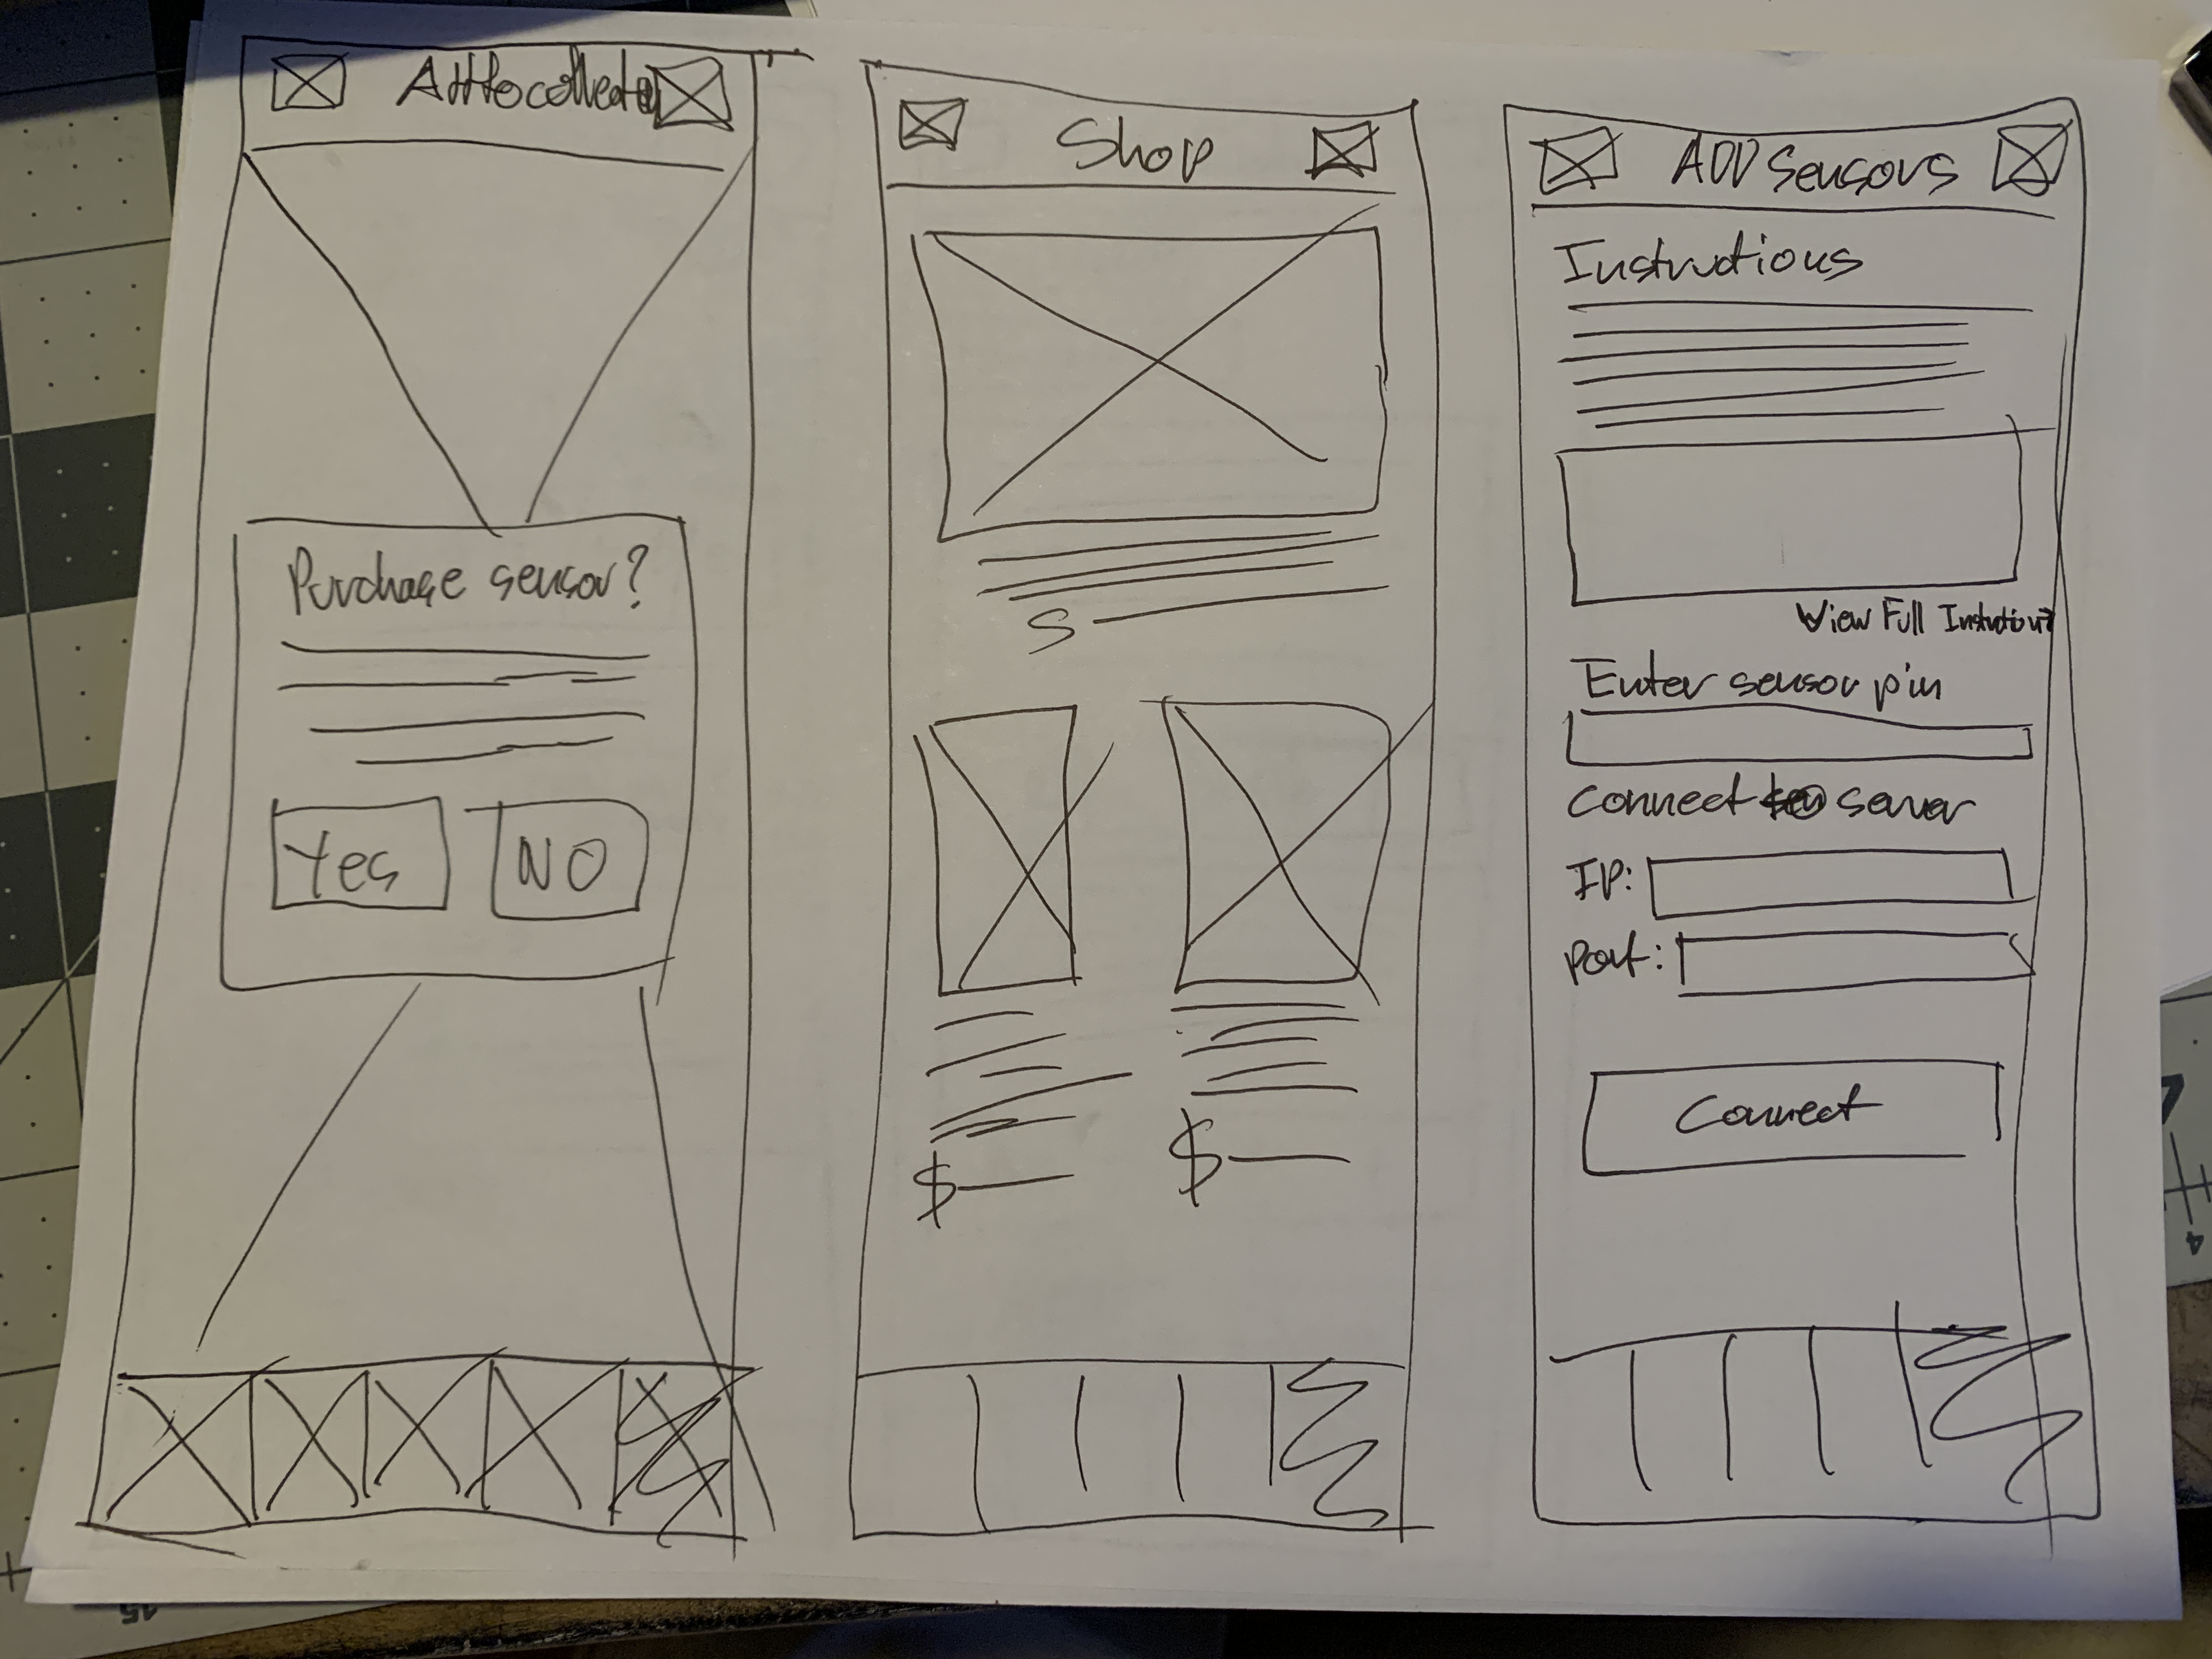 Purchase sensor?
Yes
NO
Shop
$
$
ADD Sensors
Instructions
View Full Instructions
Enter sensor pin
Connect to server
IP:
Port:
Connect
4
15